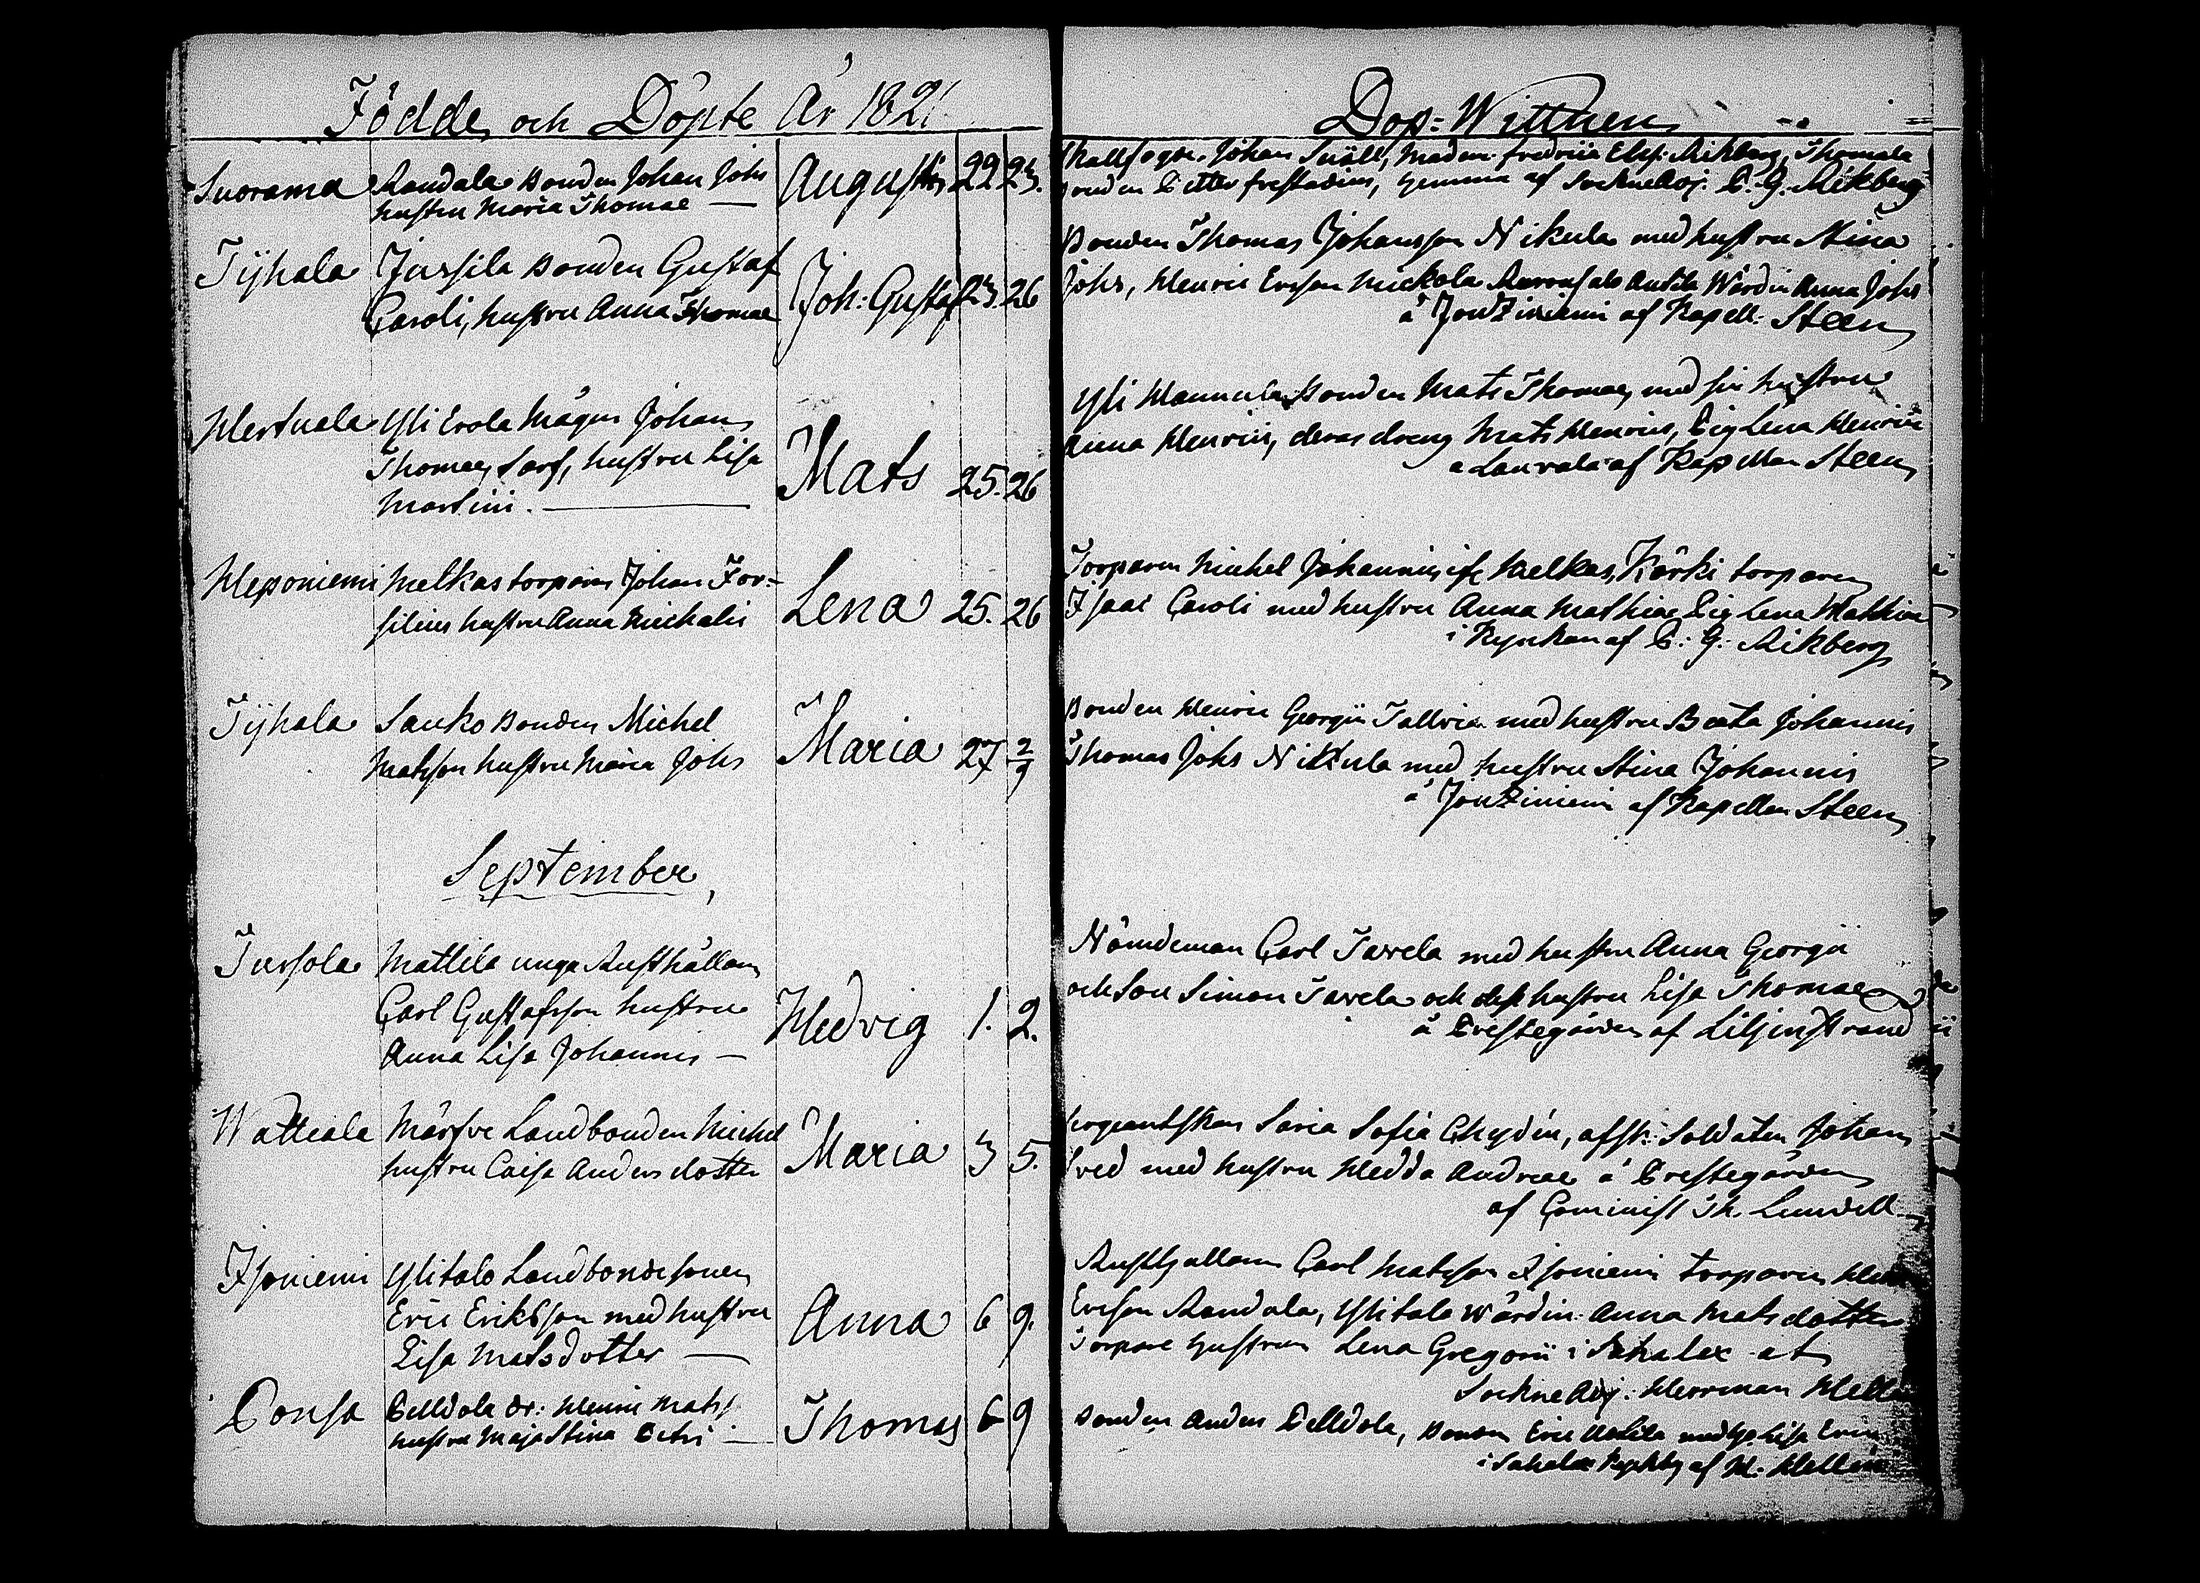 Födde och Döpte År 182
Dop-Wittnen
Suorama Randala Bonden Johan Johs
hustru Maria Thomae —
Augusti 22 23.
Johan Snäll, Madem. Fredrica Elis: Aikberg, Thomala
Petter hemma af SockneAdj. C. G. Aikberg
Tyhala Jussila Bonden Gustaf
Caroli, hustru Anna Thomae
Joh: Gustaf 23. 26
Bonden Thomas Johansson Nikula med hustru Stina
Johs, Henric Ersson Mickola Antila Wärdin Anna Johs
å Joutziniemi af Kapell. Steen
Hertuala Yli Erola Mågen Johan
Thomae, hustru Lisa
Martini. —
Mats 25. 26
Yli Bonden Mats Thomae, med sin hustru
Anna Henrici, deras dreng Mats Henrici, Pig Lena Henrici
a Laurola af Kapellan Steen
Heponiemi Melkas torparen Johan For-
silius hustru Anna Michelis
Lena 25. 26
Torparen Michel Johannis if. Melkas, Kärki torparen
Isaac Caroli med hustru Anna Mathiae Pig Lena Mathiae
i Kyrkan af C: G: Aikberg
Tyhala Sauko Bonden Michel
Matsson hustru Maria Johs
Maria 27 2/9
Bonden Henric Georgii Tallvia med hustru Beata Johannis
Thomas Johs Nikkula med hustru Stina Johannis
å Joutziniemi af Kapellan Steen
September
Tursola Mattila unga Rusthållaren
Carl Gustafsson hustru
Anna Lisa Johannis —
Hedvig 1. 2.
Nämdeman Carl Tavela med hustru Anna Georgii
och Son Simon Tavela och dess hustru Lisa Thomae
å Prestegården af Liljenstrand
Watiala Märsve Landbonden Michel
hustru Caisa Andersdotter
Maria 3 5.
Saria Sofia Chydén, afsk: Soldaten Johan
med hustru Hedda Andreae å Prestegården
af Cominist. Th. Lundell
Isoniemi Ylitalo Landbondesonen
Eric Eriksson med hustru
Lisa Matsdotter —
Anna 6 9.
Rusthållaren Carl Matsson Isoniemi torparen
Ersson Randala, Ylitalo Wärdin: Anna Matsdotter
Torpare hustrun Lena Gregorii i Sahalax at
SockneAdj: Herrman
Ponsa Pelldola dr: Henric Matss
hustru Maja Stina Petri —
Thomas 6 9
Bonden Anders Pelldola, Bonden Eric Lisa
i Sahalax af H: